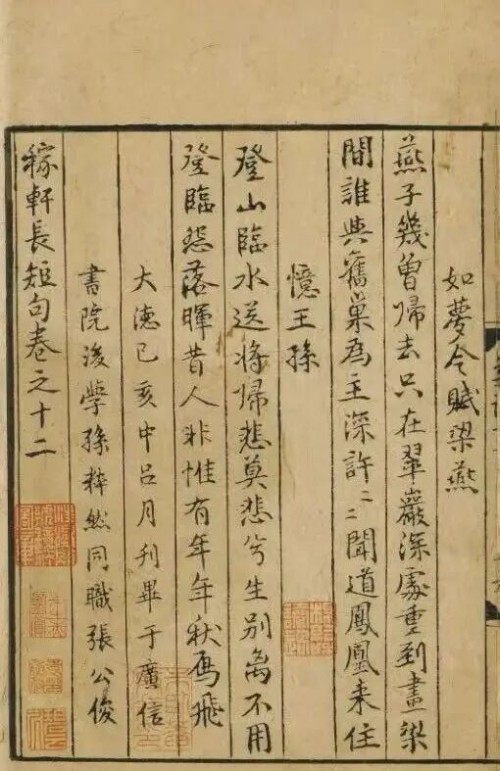 如夢令賦梁燕
燕子幾曾歸去只在翠巖深處重到畫梁
間誰與舊巢為主深許〻〻聞道鳳凰来住
憶王孫
登山臨水送將歸悲莫悲兮生别离不用
登臨怨落暉昔人非惟有年年秋鴈飛
大德己亥中吕月刊畢于廣信
書院後學孫粹然同職張公俊
稼軒長短句卷之十二